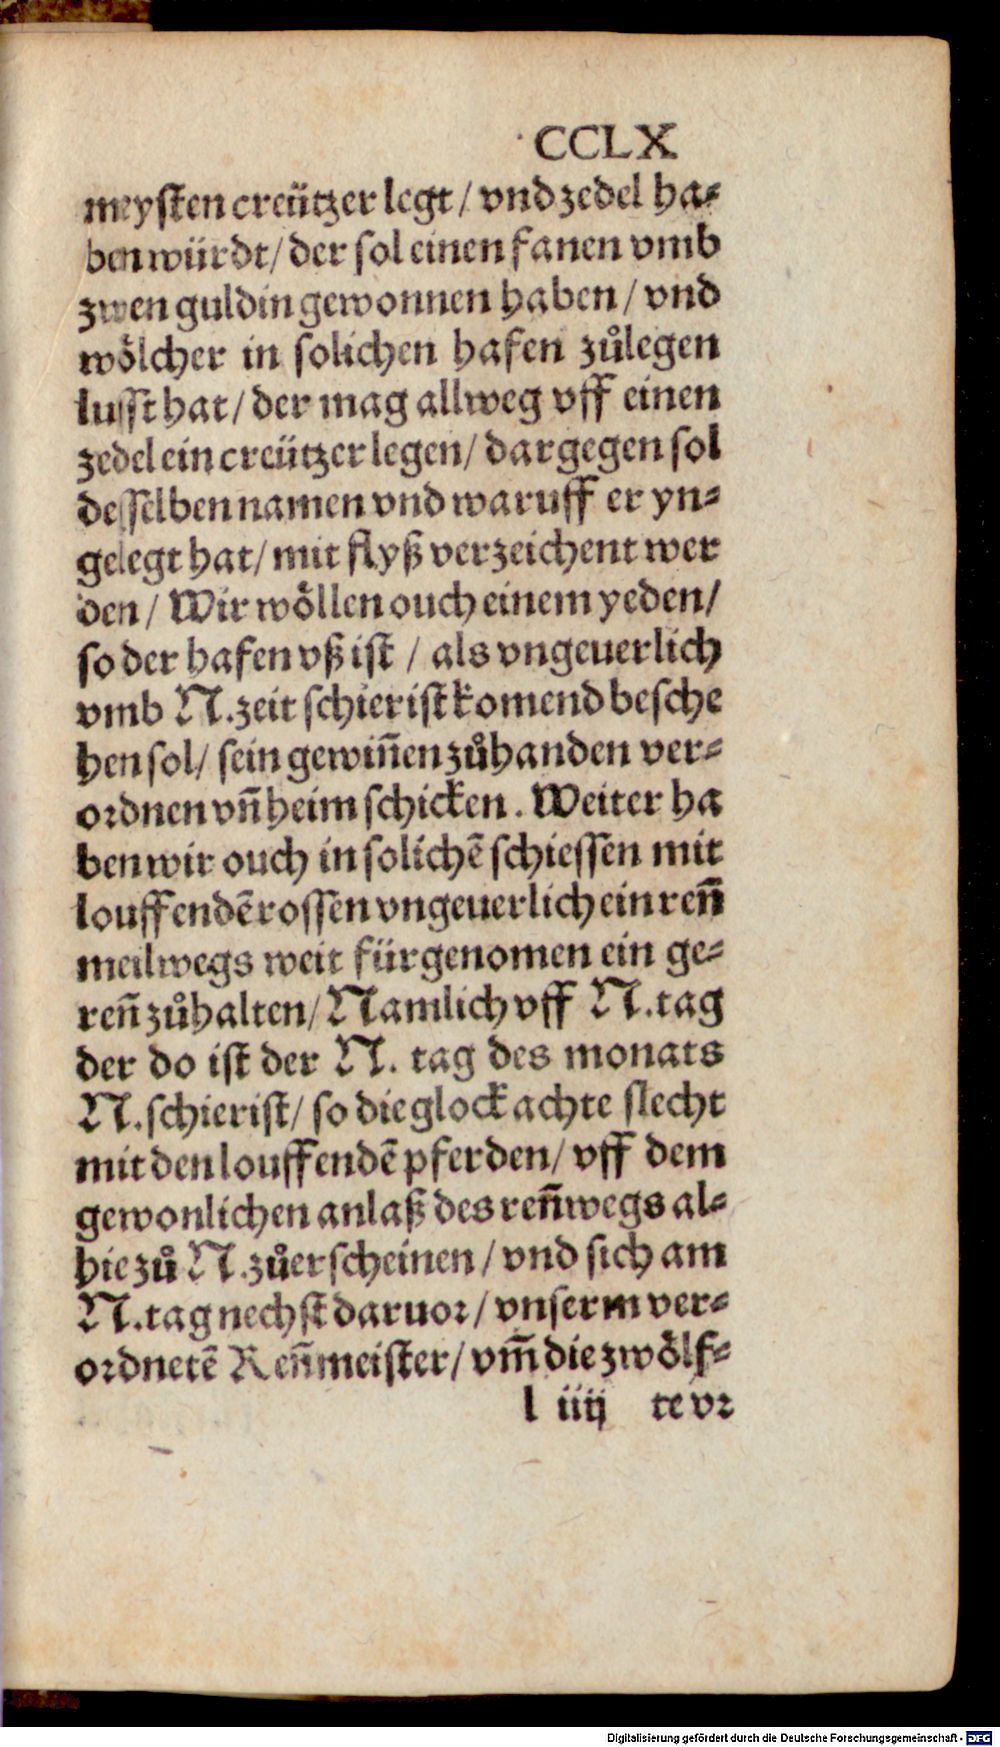 CCLX
meysten creützer legt / vnd zedel ha⸗
ben würdt / der sol einen fanen vmb
zwen guldin gewonnen haben / vnd
wölcher in solichen hafen zůlegen
lusst hat / der mag allweg vff einen
zedel ein creützer legen / dargegen sol
desselben namen vnd waruff er yn⸗
gelegt hat / mit flyß verzeichent wer
den / Wir wöllen ouch einem yeden /
so der hafen vß ist / als vngeuerlich
vmb N. zeit schierist komend besche
hen sol / sein gewin̄en zůhanden ver⸗
ordnen vn̄ heim schicken. Weiter ha
ben wir ouch in solichē schiessen mit
louffendē rossen vngeuerlich ein ren̄
meilwegs weit fürgenomen ein ge⸗
ren̄ zůhalten / Namlich vff N. tag
der do ist der N. tag des monats
N. schierist / so die glock achte slecht
mit den louffendē pferden / vff dem
gewonlichen anlaß des ren̄wegs al⸗
hie zů N. zůerscheinen / vnd sich am
N. tag nechst daruor / vnserm ver⸗
ordnetē Ren̄meister / vm̄ die zwölf⸗
l iiij te vr
Digitalisierung gefördert durch die Deutsche Forschungsgemeinschaft - DFG